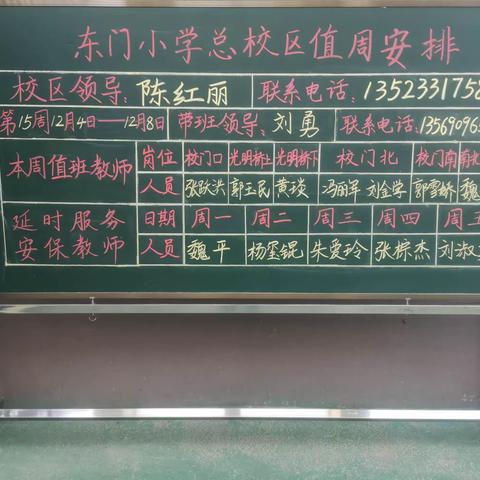 东门小学总校区值周安排
校区领导：陈红丽 联系电话：1352331758
第15周12月4日——12月8日 带班领导：刘勇 联系电话：13569096
本周值班教师 岗位 校门口 光明桥上 光明桥下 校门北 校门南 南北
人员 张跃洪 郭玉民 黄琰 冯丽苹 刘金学 郭雪娇 魏
延时服务安保教师 日期 周一 周二 周三 周四 周五
人员 魏平 杨玺锟 朱爱玲 张棕杰 刘淑